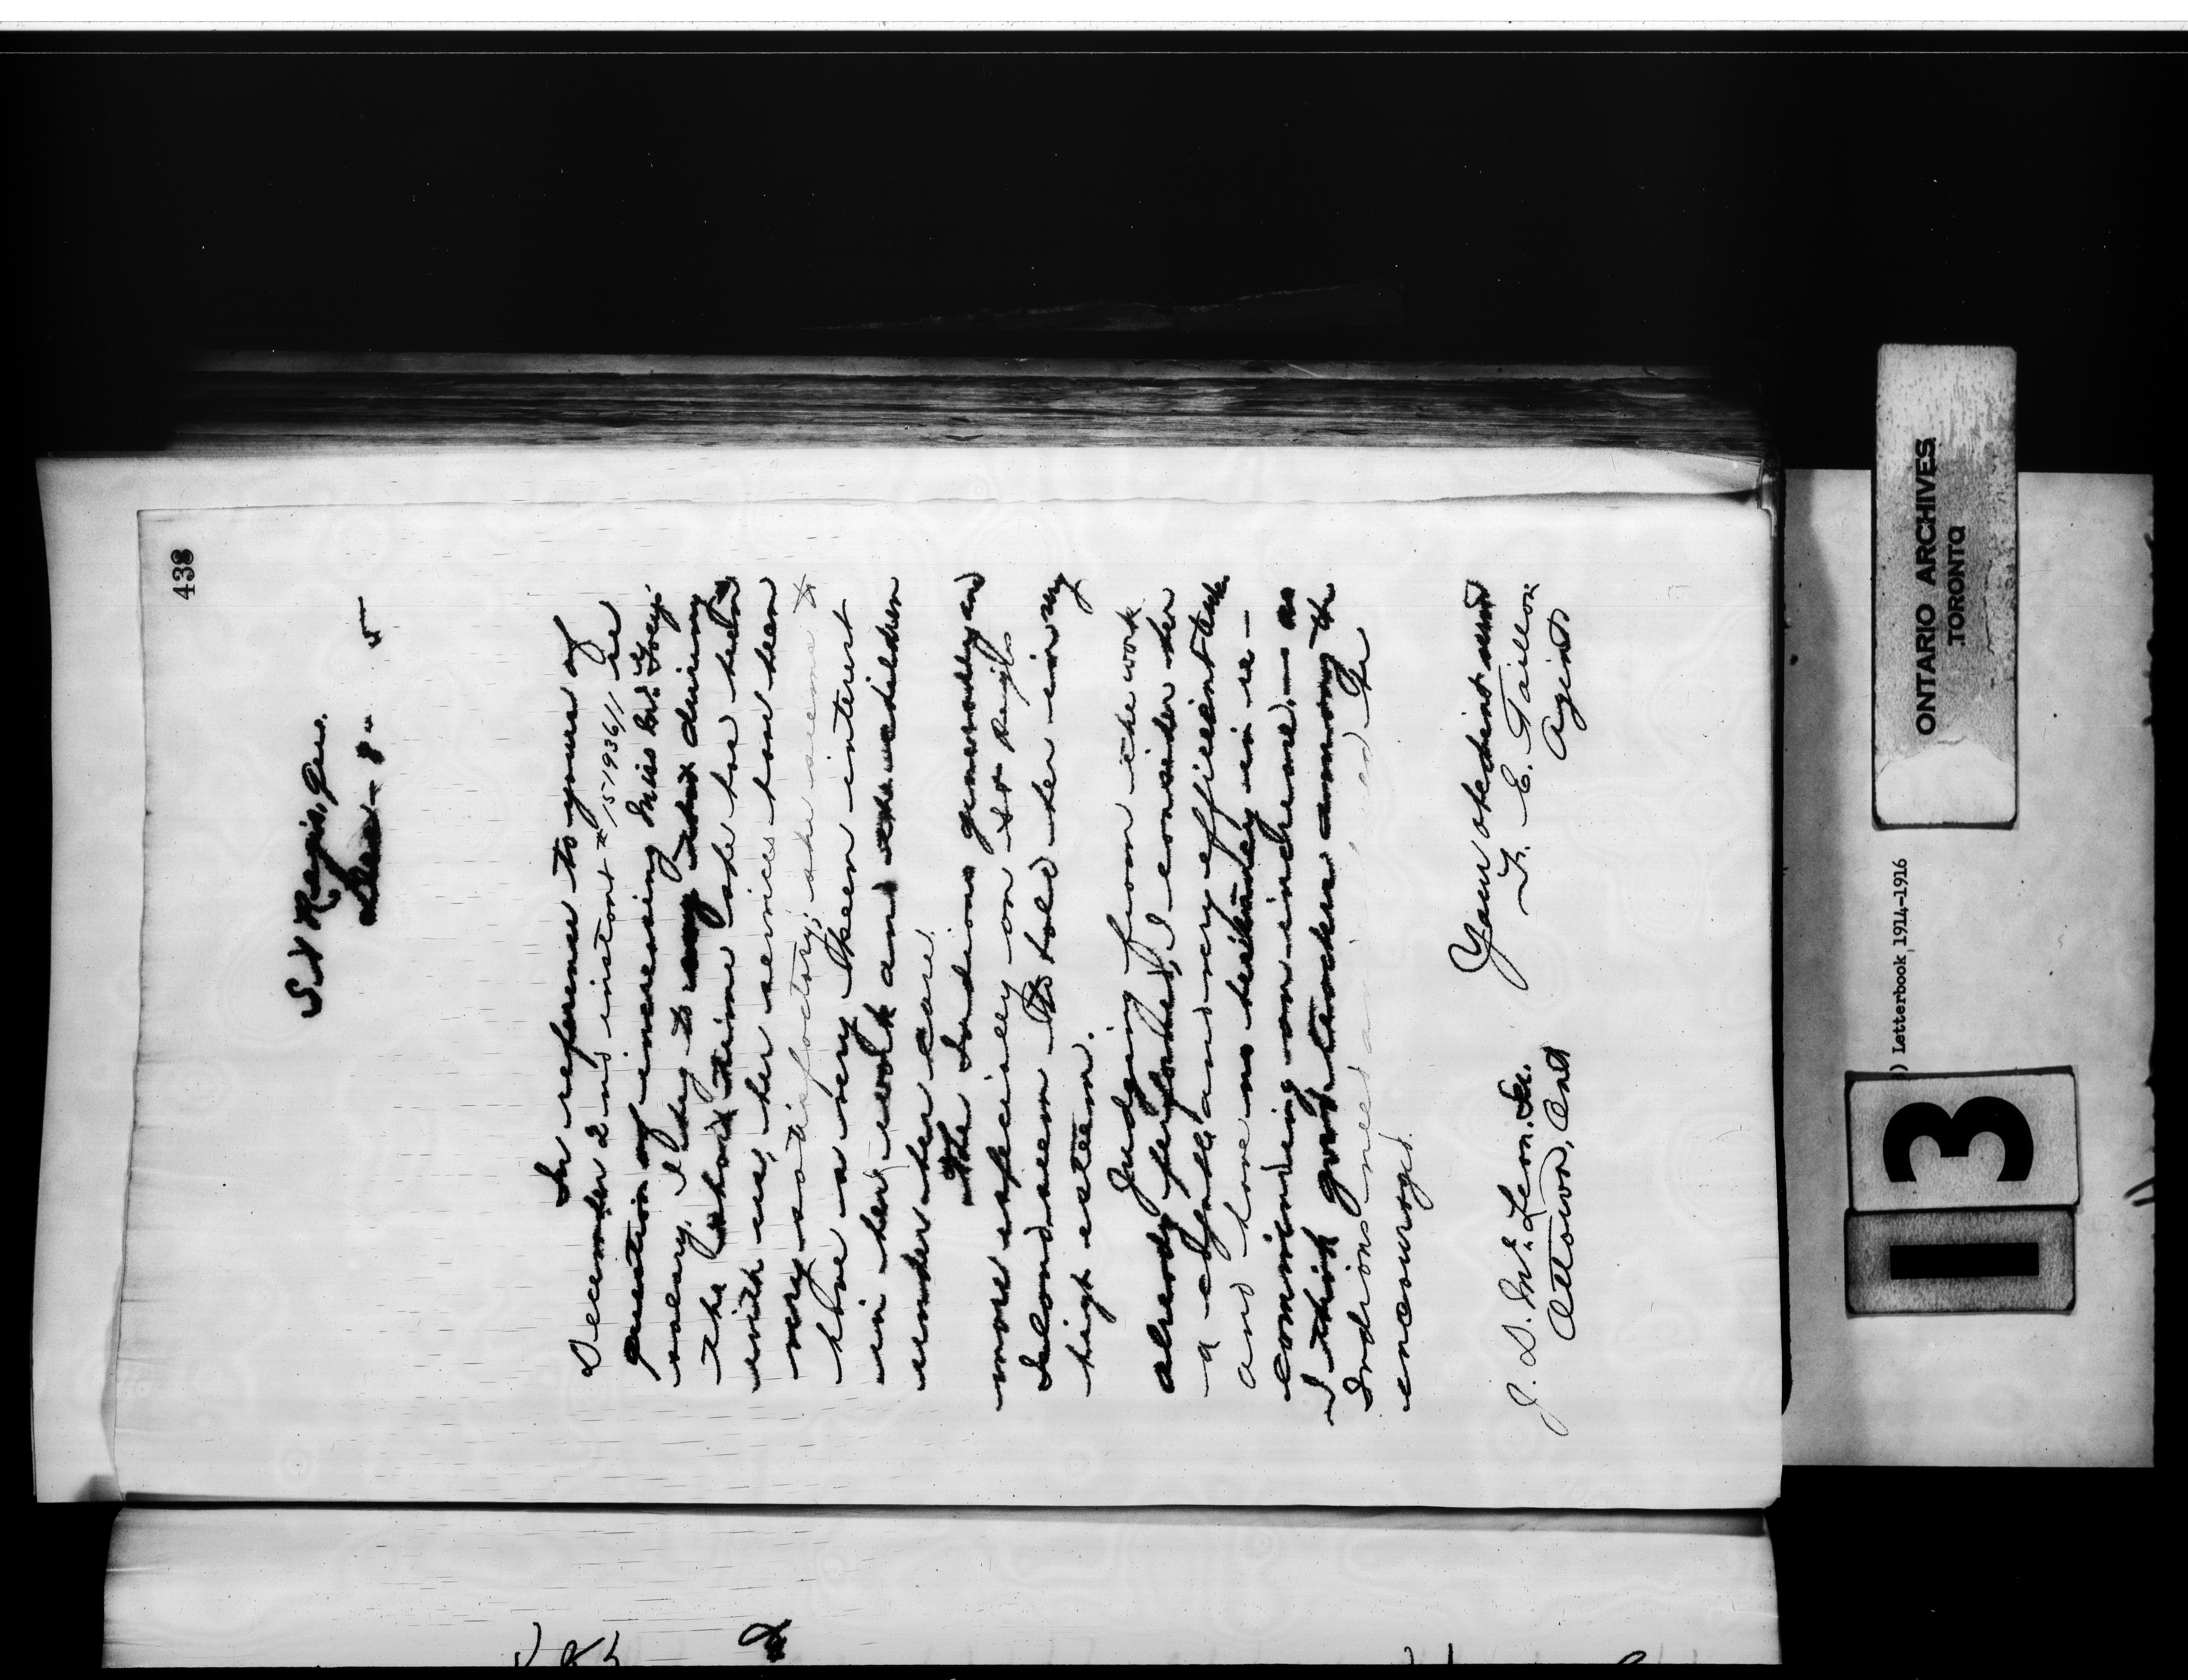 438
St Regis, Que.
Dec- 8" 5
In reference to yours of
December 2nd instant # 51936/1 re
question of increasing Miss
salary, I beg to say that during
the short time she has been
with us, her services have been
very satisfactory; she seems to
have a very keen interest
in her work and the children
under her care.
The Indians generally and
more especially on St Regis
Island seem to hold her in very
high esteem.
Judging from the work
already performed, I consider her
a capable and very efficient teacher
and have no hesitancy in re-
commending an increase, - as
I think good teachers among the
Indians need
encouraged.
Your obedient servant
F. E. Taillon
Agent
J. D. McLean. Sec.
Ottawa, Ont
ONTARIO ARCHIVES
TORONTO
) Letterbook, 1914-1916
13